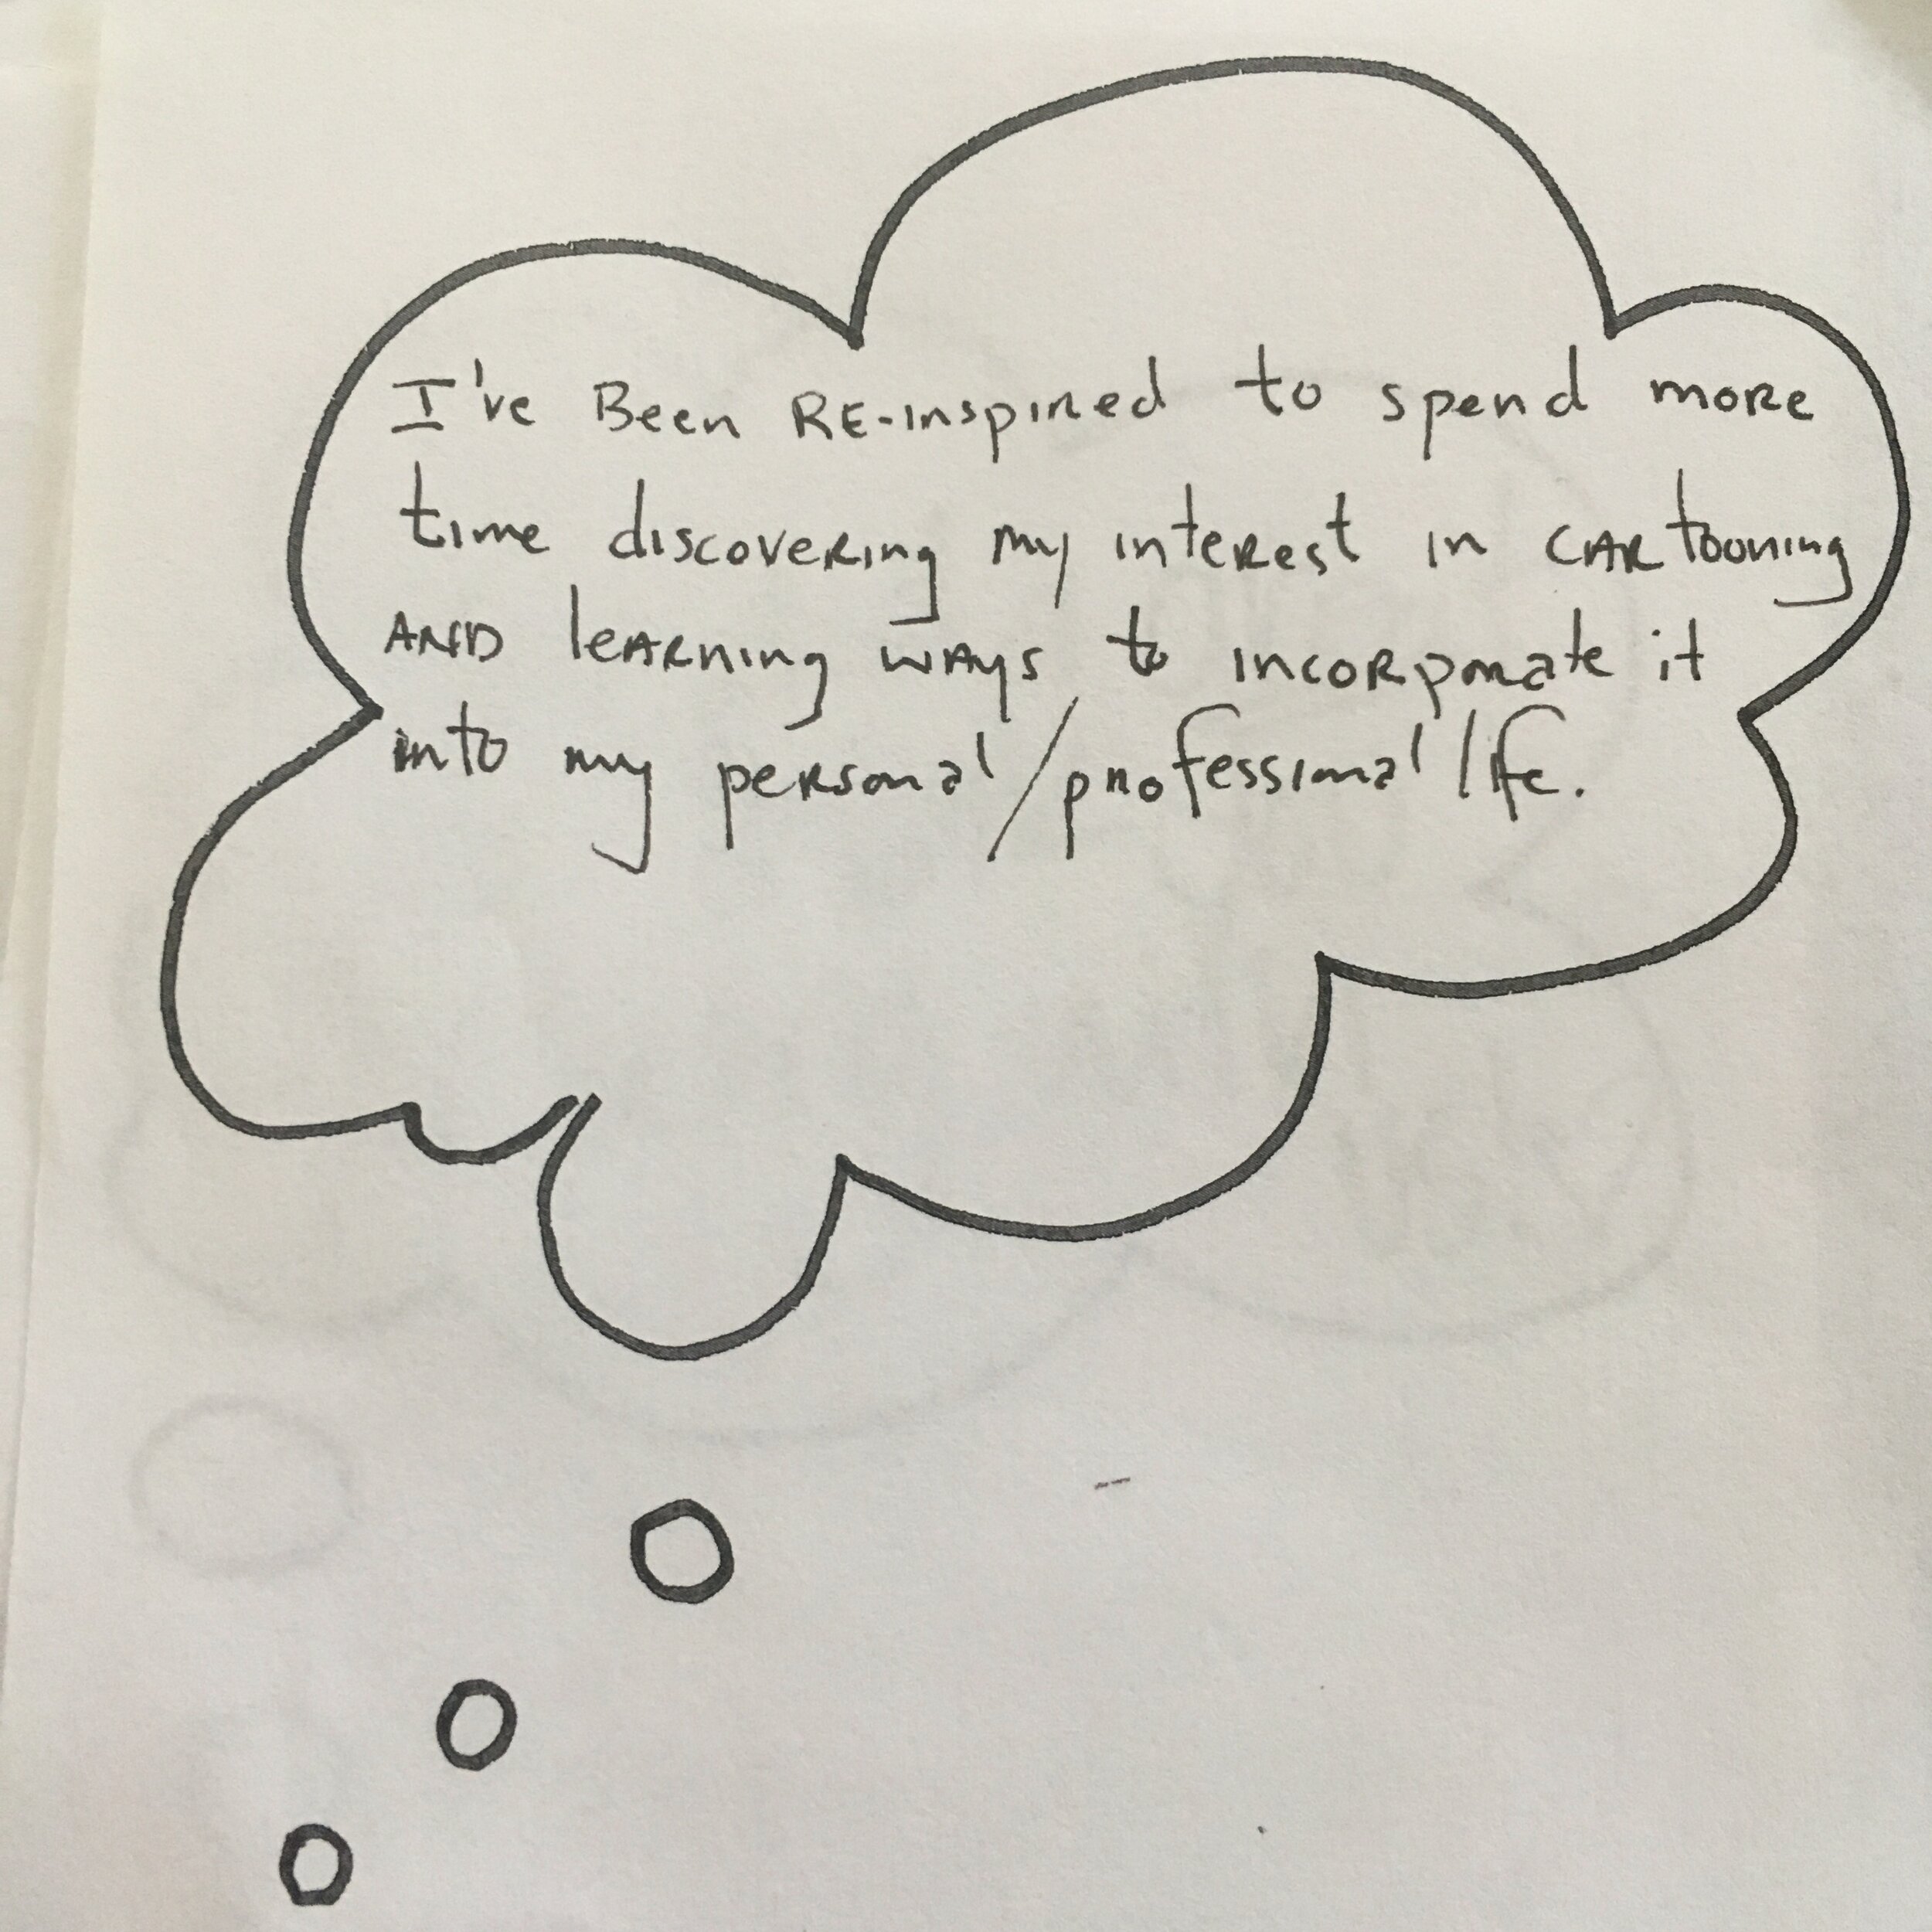 I've Been RE-inspired to spend more
time discovering my interest in cartooning
AND learning ways to incorporate it
into my personal/professional life.